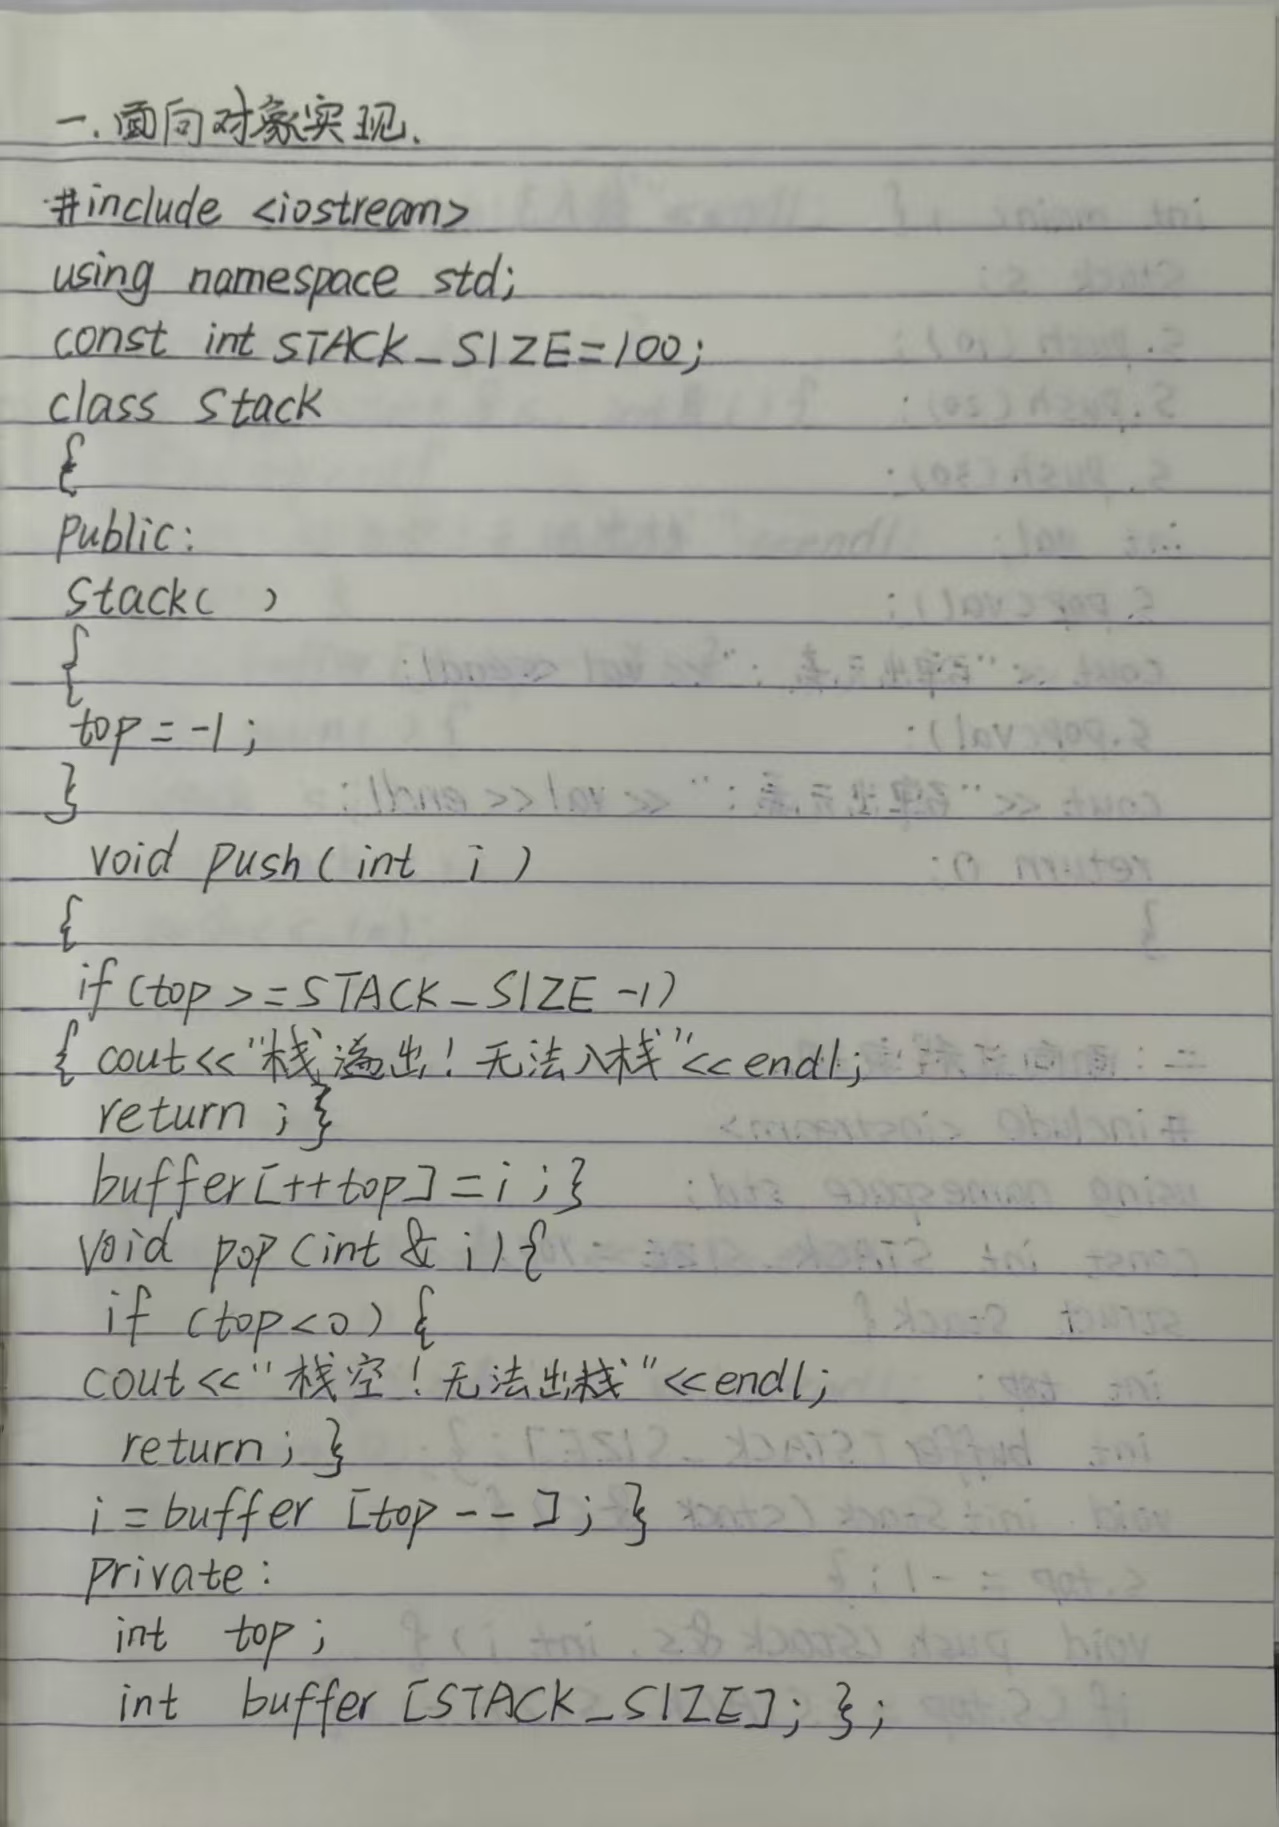 一.面向对象实现.
#include <iostream>
using namespace std;
const int STACK_SIZE=100;
class Stack
{
public:
Stack( )
{
top=-1;
}
void push(int i)
{
if(top>=STACK_SIZE-1)
{ cout<<"栈溢出!无法入栈"<<endl;
return ;}
buffer[++top]=i;}
void pop(int & i){
if (top<0) {
cout<<"栈空!无法出栈"<<endl;
return; }
i=buffer [top--];}
private:
int top;
int buffer [STACK_SIZE]; };